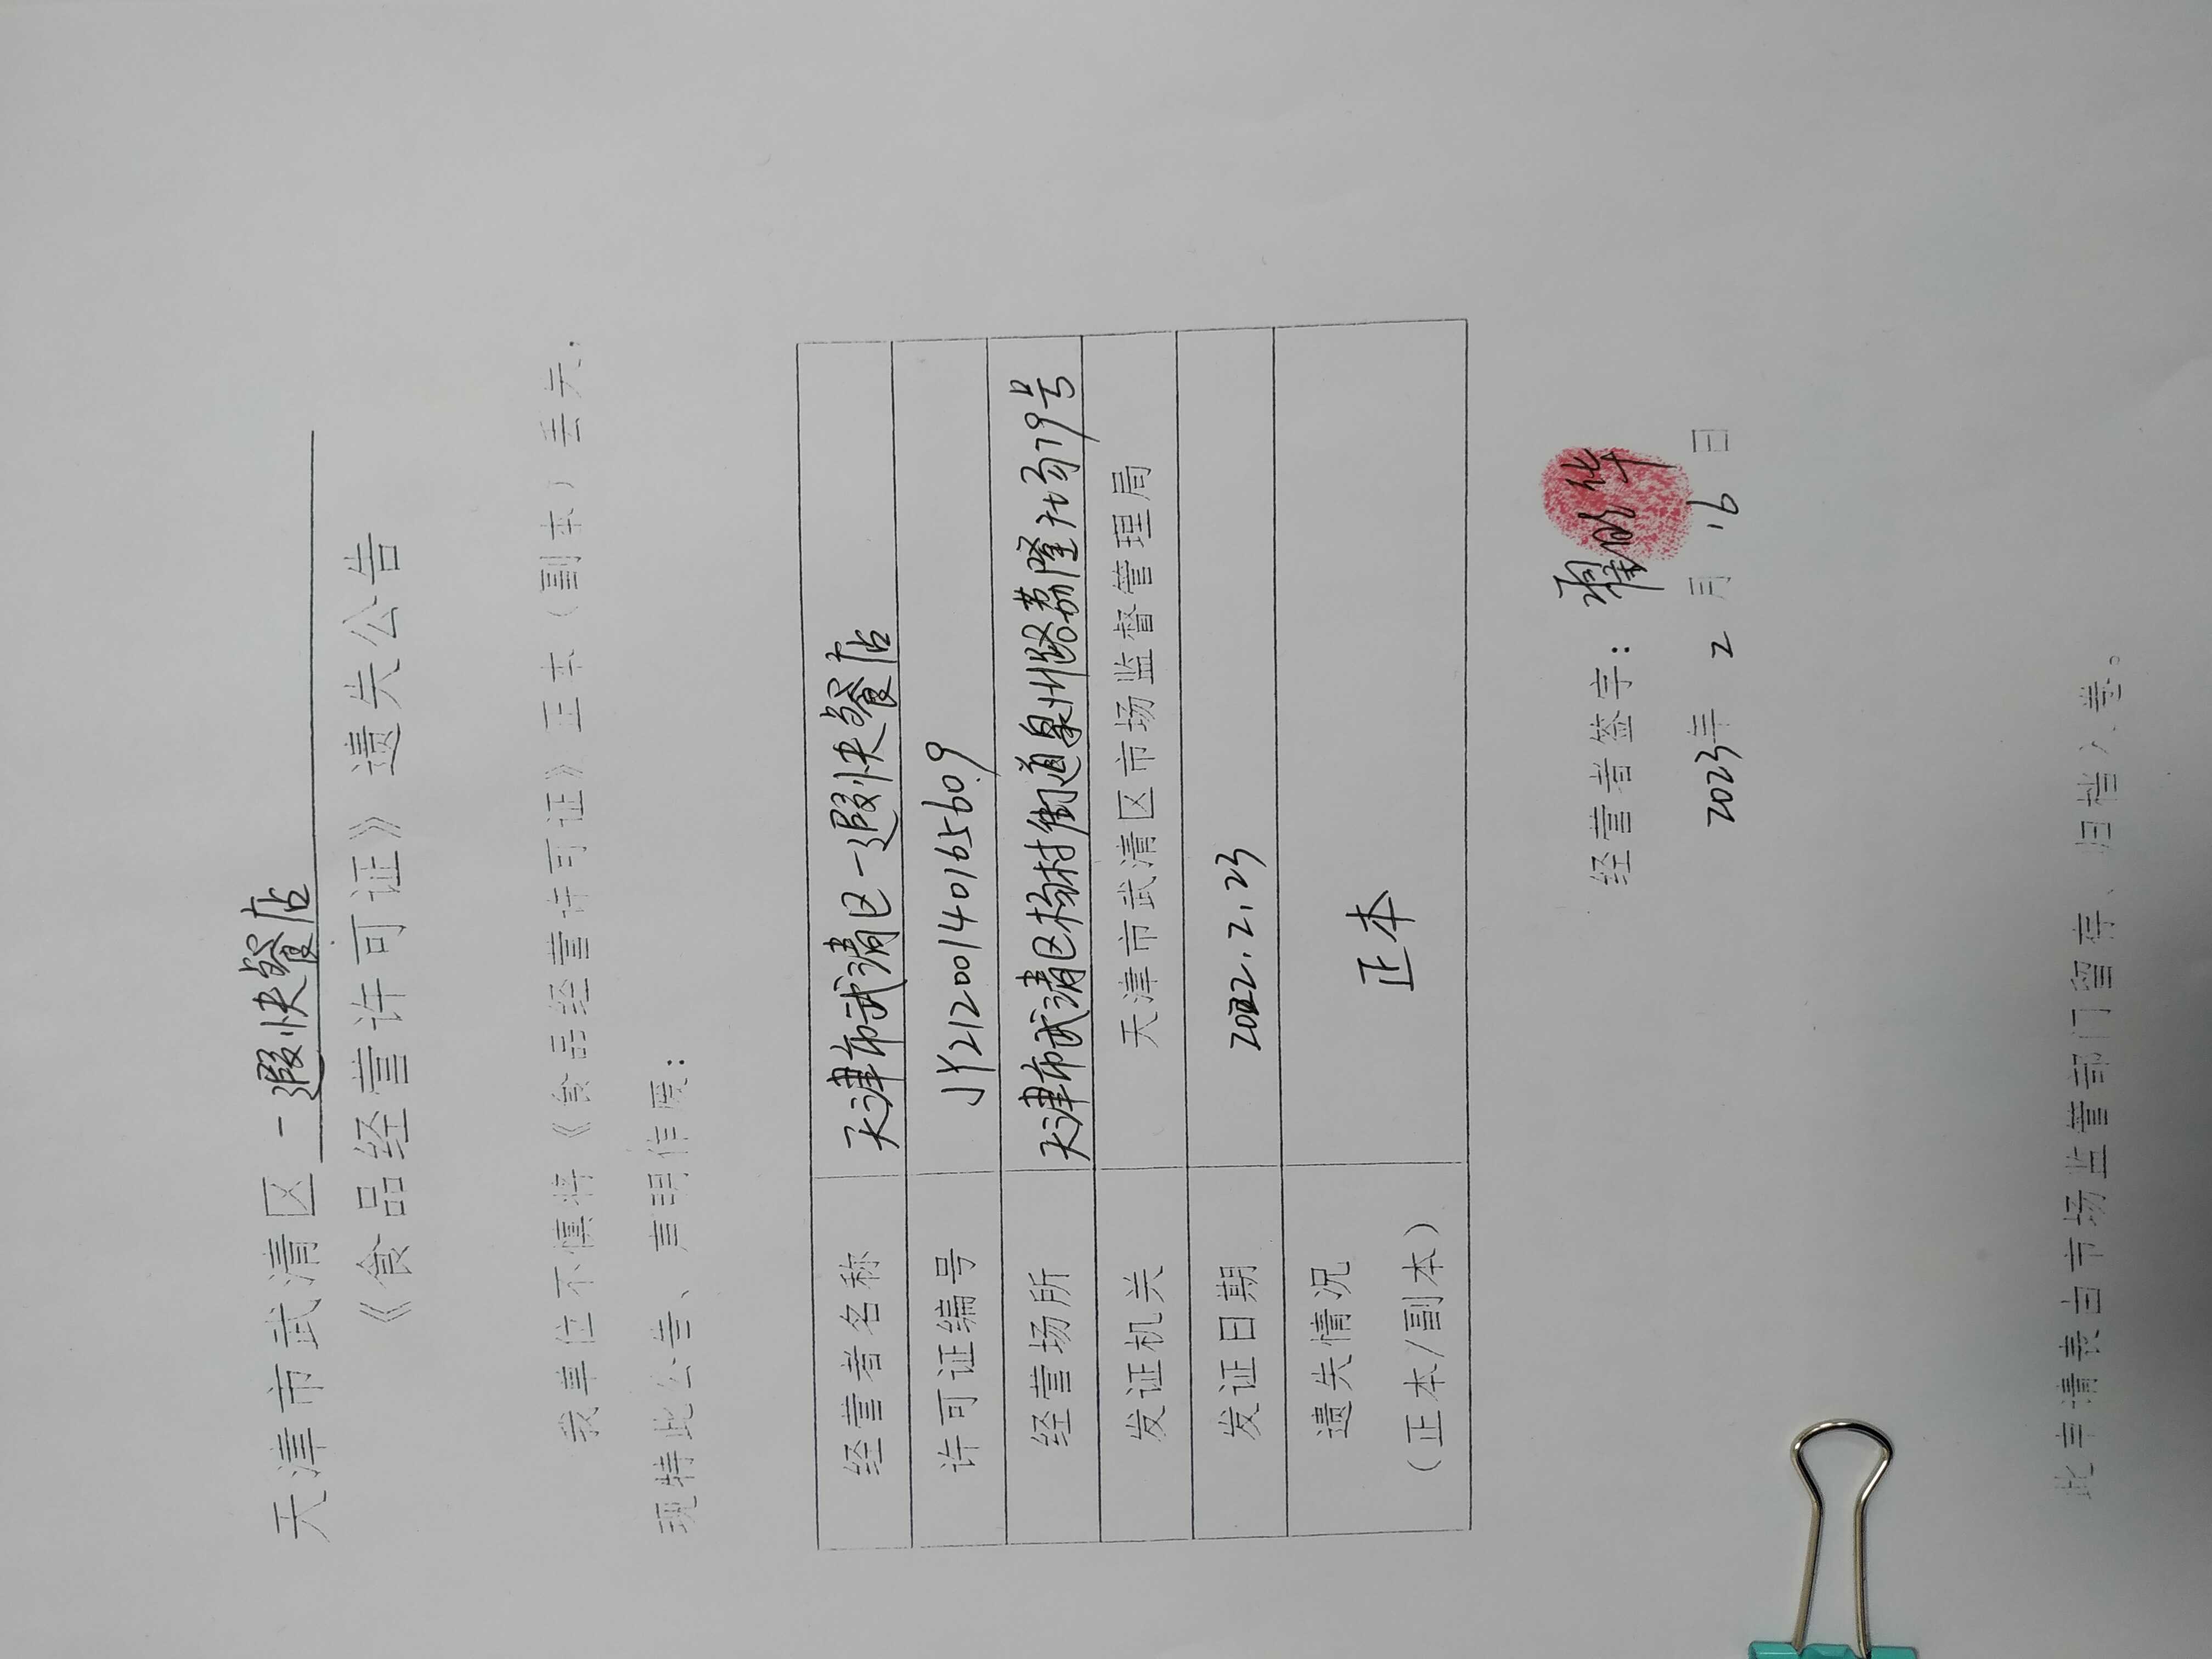 天津市武清区一遐快餐店
《食品经营许可证》遗失公告
我单位不慎将《食品经营许可证》正本（副本）丢失，
现特此公告、声明作废：
经营者名称 天津市武清区一遐快餐店
许可证编号 JY21200140165609
经营场所 天津市武清区杨村街道泉州路荔隆广场79号
发证机关 天津市武清区市场监督管理局
发证日期 2022.2.23
遗失情况 正本
（正本/副本）
经营者签字： 华
2023年 2 月 16 日
此申请表由市场监管部门留存、归档入卷。